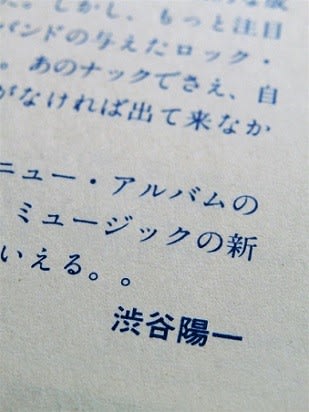 。しかし、もっと注目
バンドの与えたロック・
。あのナックでさえ、自
がなければ出て来なか
ニュー・アルバムの
ミュージックの新
いえる。。
渋谷陽一